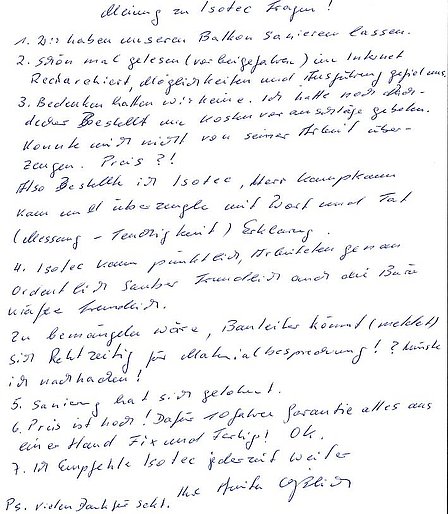 Meinung zu Isotec Fragen!
1. Wir haben unseren Balkon sanieren lassen.
2. Schon mal gelesen (vorbeigefahren) im Internet
Recharchiert, Möglichkeiten und Ausführung gefiel uns
3. Bedenken hatten wir keine. Ich hatte noch Dach-
decker Bestellt um Kostenvoranschläge gebeten.
Konnte mich nicht von seiner Arbeit über-
zeugen. Preis?!
Also Bestellte ich Isotec, Herr
kam und überzeugte mit Wort und Tat
(Messung - Feuchtigkeit) Erklärung.
4. Isotec kam pünktlich, Arbeiteten genau
Ordentlich Sauber Freundlich auch die Büro
kräfte freundlich.
Zu bemängeln wäre, Bauleiter kommt (meldet)
sich Rechtzeitig für Materialbesprechung!? musste
ich nachhaken!
5. Sanierung hat sich gelohnt.
6. Preis ist hoch! Dafür 10 Jahre Garantie alles aus
einer Hand Fix und Fertig! OK.
7. Ich Empfehle Isotec jederzeit weiter
Ps. vielen Dank für Sekt. Ihre Anita